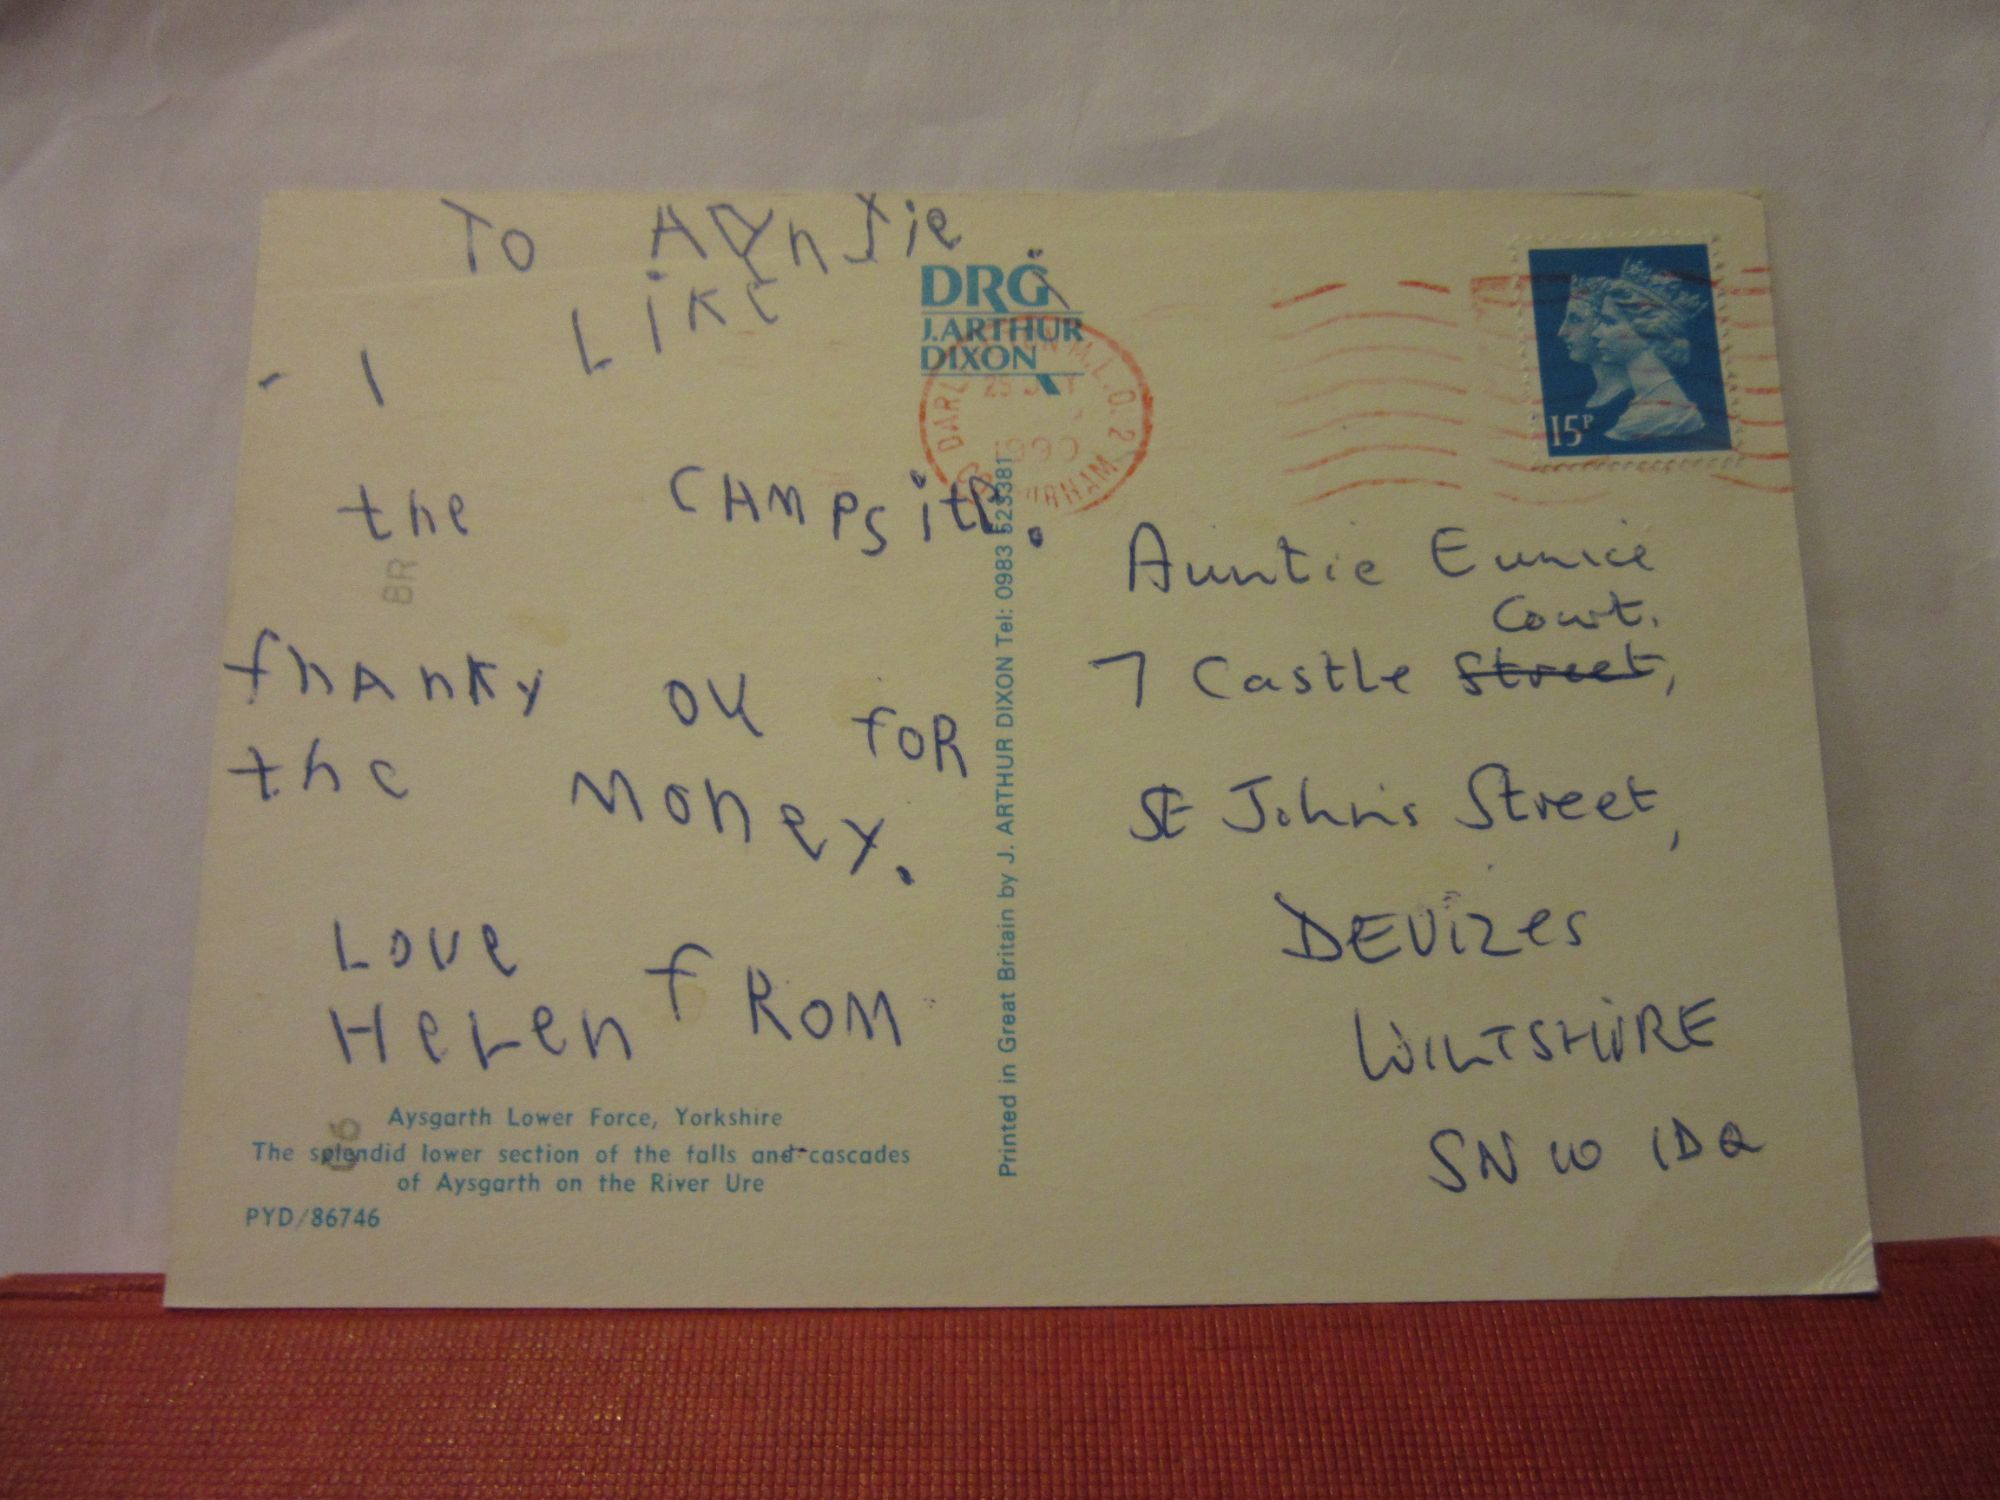 To AUntie
- I LiKe
the CAMPSite.
thAnKy oU foR
the Money.
Love
Helen fROM
Aysgarth Lower Force, Yorkshire
The splendid lower section of the falls and cascades
of Aysgarth on the River Ure
PYD/86746
BR
DRG
J.ARTHUR
DIXON
Printed in Great Britain by J. ARTHUR DIXON Tel: 0983 523381
15P
Auntie Eunice
Court.
7 Castle Street,
St John's Street,
DEVIZES
WILTSHIRE
SN10 1DQ